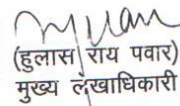 (हुलास राय पवार)
मुख्य लेखाधिकारी